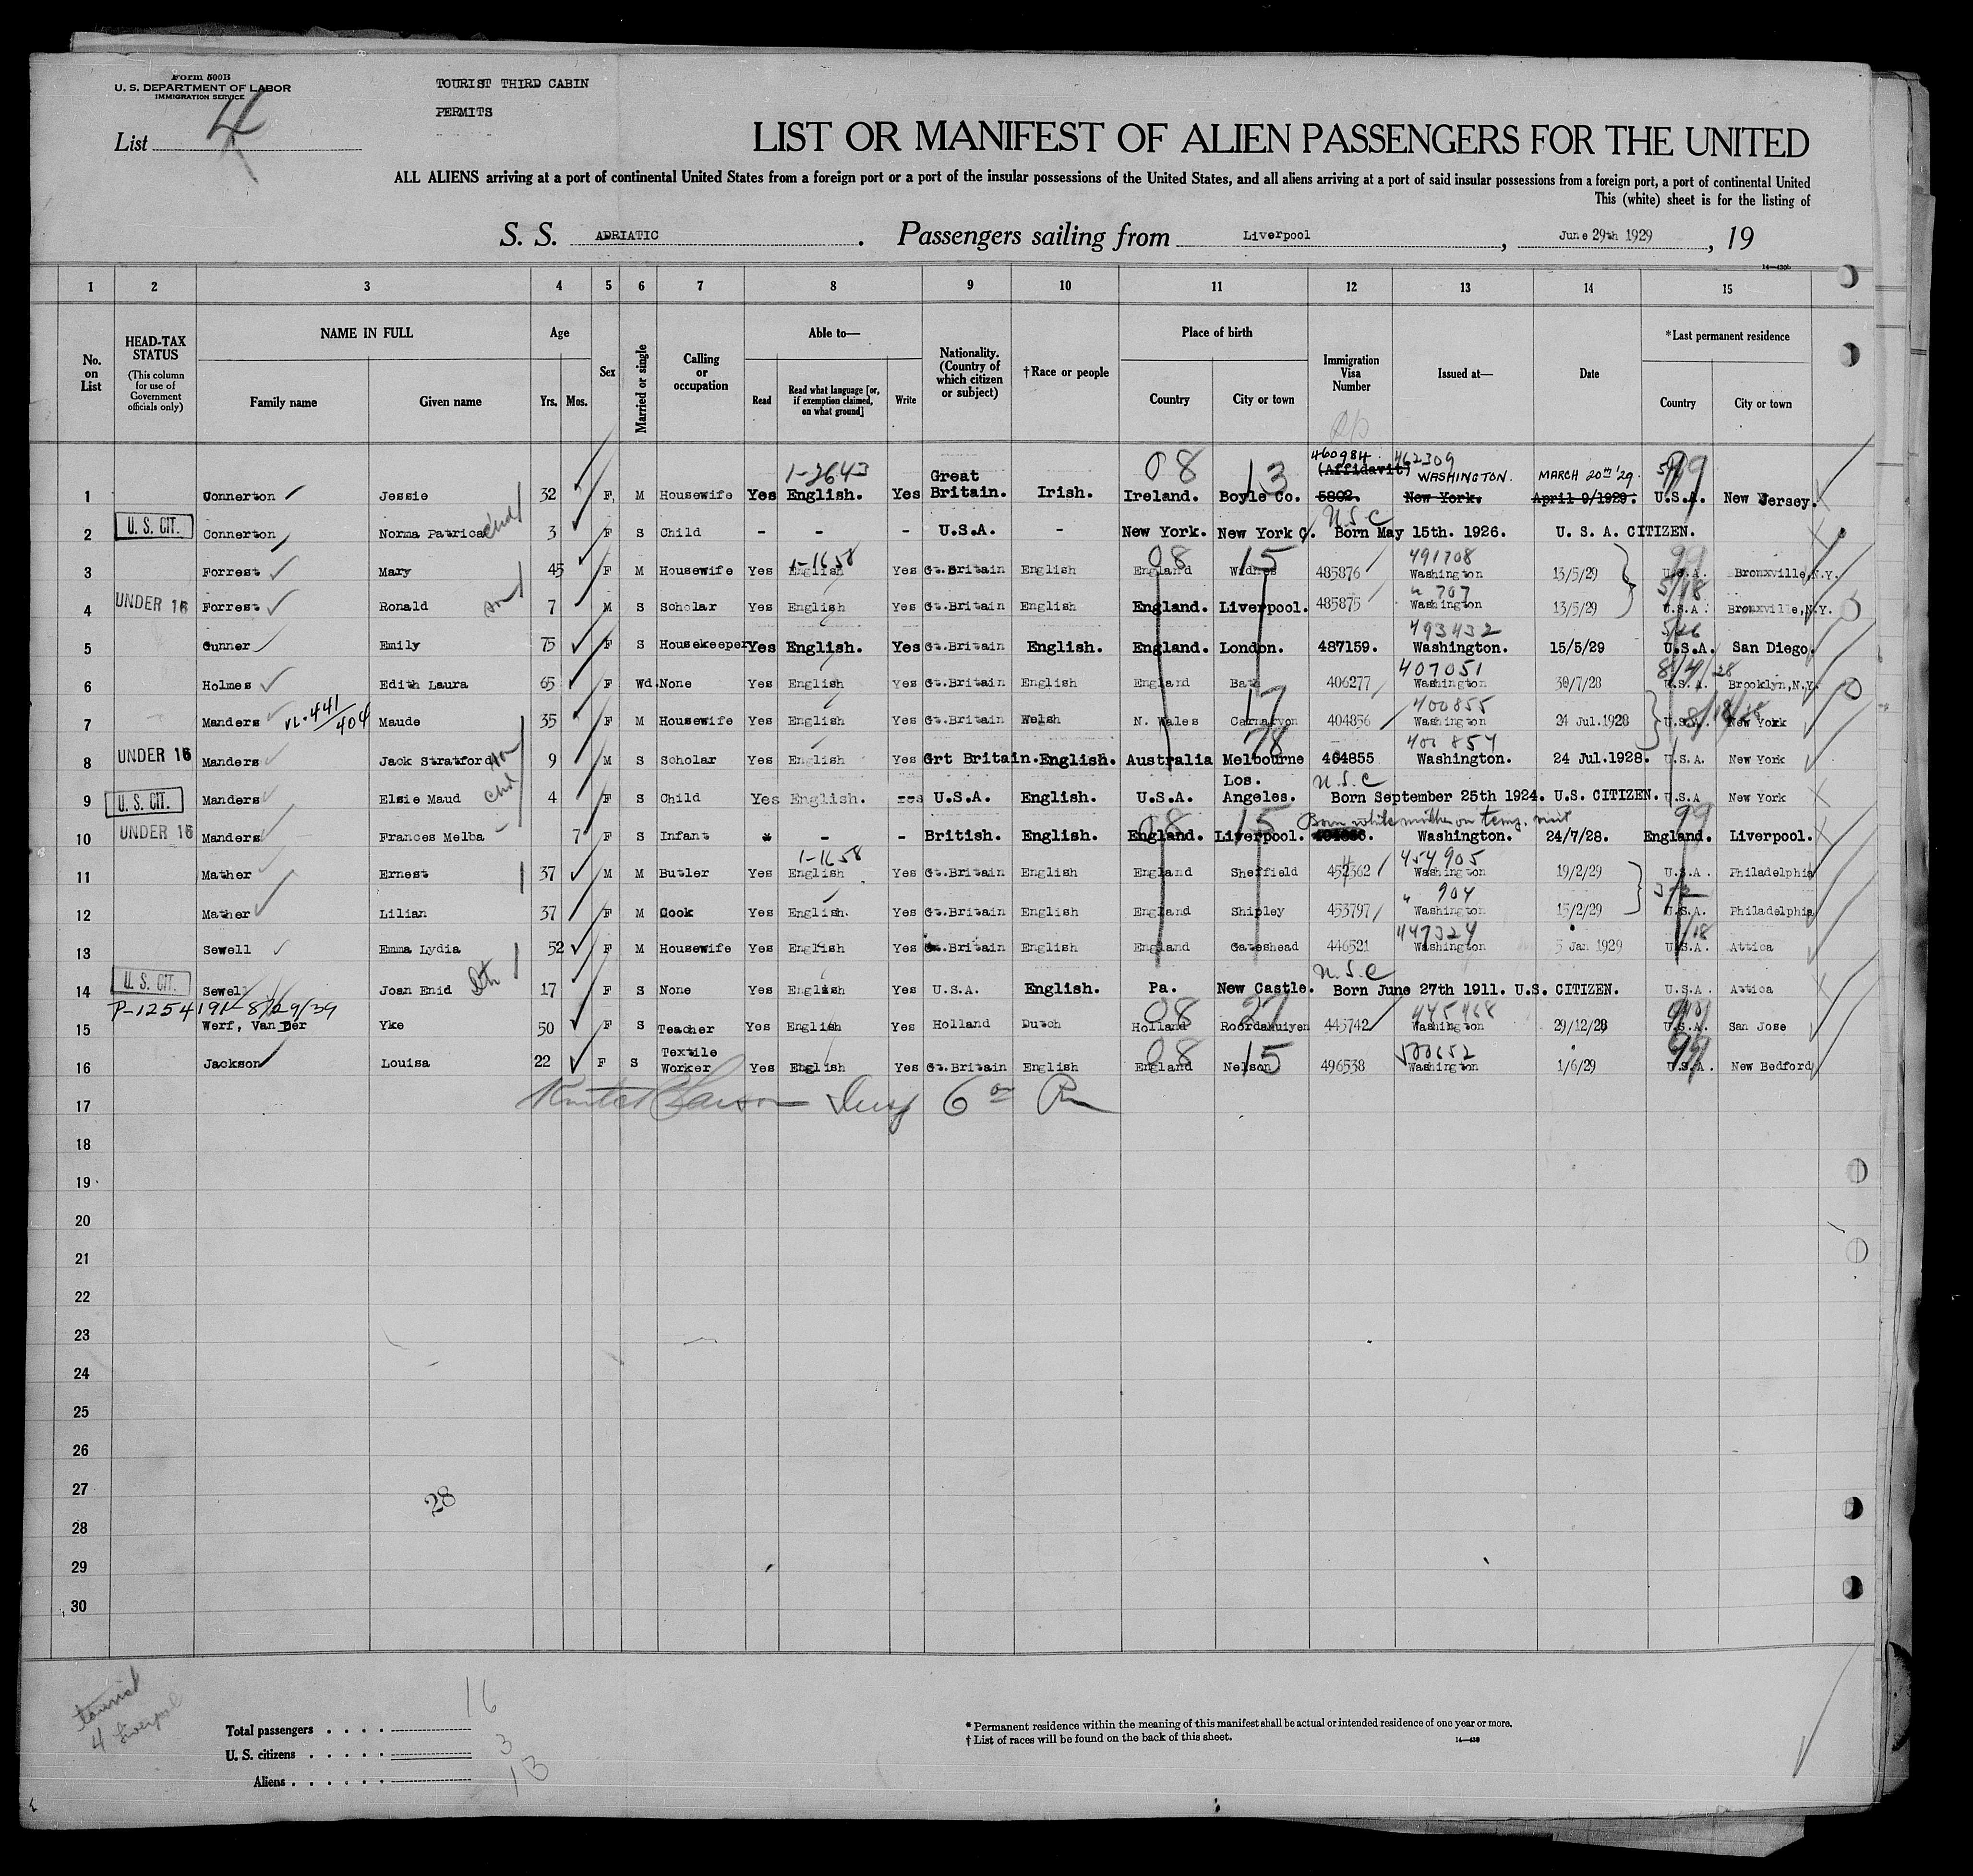 Form 500B
U. S. DEPARTMENT OF LABOR
IMMIGRATION SERVICE
TOURIST THIRD CABIN
PERMITS
List 4
LIST OR MANIFEST OF ALIEN PASSENGERS FOR THE UNITED
ALL ALIENS arriving at a port of continental United States from a foreign port or a port of the insular possessions of the United States, and all aliens arriving at a port of said insular possessions from a foreign port, a port of continental United
This (white) sheet is for the listing of
S. S. ADRIATIC. Passengers sailing from Liverpool, June 29th 1929, 19
1 2 3 4 5 6 7 8 9 10 11 12 13 14 15
No. on List
HEAD-TAX STATUS (This column for use of Government officials only)
NAME IN FULL Family name Given name
Age Yrs. Mos.
Sex
Married or single
Calling or occupation
Able to— Read Read what language [or, if exemption claimed, on what ground] Write
Nationality. (Country of which citizen or subject)
†Race or people
Place of birth Country City or town
Immigration Visa Number
Issued at—
Date
*Last permanent residence Country City or town
1-2643 08 13 460984 462309
1 Connerton Jessie 32 F M Housewife Yes English. Yes Great Britain. Irish. Ireland. Boyle Co. (Affidavit) 5802. WASHINGTON. New York. MARCH 20TH '29 April 9/1929. U.S.A. New Jersey.
2 U. S. CIT. Connerton Norma Patrica 3 F S Child - - - U.S.A. - New York. New York C. U.S.C Born May 15th. 1926. U. S. A. CITIZEN.
1-1658 08 15 491708 99
3 Forrest Mary 45 F M Housewife Yes English Yes Gt.Britain English England Widnes 485876 Washington 13/5/29 U.S.A. Bronxville,N.Y.
" 707 5/18
4 UNDER 16 Forrest Ronald son 7 M S Scholar Yes English Yes Gt.Britain English England. Liverpool. 485875 Washington 13/5/29 U.S.A. Bronxville,N.Y.
493432
5 Gunner Emily 75 F S Housekeeper Yes English. Yes Gt.Britain English. England. London. 487159. Washington. 15/5/29 U.S.A. San Diego.
407051
6 Holmes Edith Laura 65 F Wd. None Yes English Yes Gt.Britain English England Bath 406277 Washington 30/7/28 U.S.A. Brooklyn,N.Y.
VL. 441/404 17 400855
7 Manders Maude 35 F M Housewife Yes English Yes Gt.Britain Welsh N. Wales Carnarvon 404856 Washington 24 Jul.1928 U.S.A. New York
78 400854
8 UNDER 16 Manders Jack Stratford son 9 M S Scholar Yes English Yes Grt Britain. English. Australia Melbourne 464855 Washington. 24 Jul.1928. U.S.A. New York
9 U. S. CIT. Manders Elsie Maud chd 4 F S Child Yes English. Yes U.S.A. English. U.S.A. Los. Angeles. U.S.C Born September 25th 1924. U.S. CITIZEN. U.S.A New York
08 15 Born while mother on temp. visit 99
10 UNDER 16 Manders Frances Melba 7 F S Infant - - British. English. England. Liverpool. Washington. 24/7/28. England. Liverpool.
1-1658 454905
11 Mather Ernest 37 M M Butler Yes English Yes Gt.Britain English England Sheffield 452362 Washington 19/2/29 U.S.A. Philadelphia
" 904
12 Mather Lilian 37 F M Cook Yes English. Yes Gt.Britain English England Shipley 453797 Washington 15/2/29 U.S.A. Philadelphia
447324
13 Sewell Emma Lydia 52 F M Housewife Yes English Yes Gt.Britain English England Gateshead 446521 Washington 5 Jan 1929 U.S.A. Attica
14 U. S. CIT. Sewell Joan Enid 17 F S None Yes English Yes U.S.A. English. Pa. New Castle. U.S.C Born June 27th 1911. U.S. CITIZEN. U.S.A. Attica
08 27 445468
15 Werf, Van Der Yke 50 F S Teacher Yes English Yes Holland Dutch Holland Roordahuiyen 445742 Washington 29/12/28 U.S.A. San Jose
08 15 500652 99
16 Jackson Louisa 22 F S Textile Worker Yes English Yes Gt.Britain English England Nelson 496538 Washington 1/6/29 U.S.A. New Bedford
17
18
19
20
21
22
23
24
25
26
27
28
28
29
30
tourist
4 Liverpool
Total passengers 16
U. S. citizens 3
Aliens 13
* Permanent residence within the meaning of this manifest shall be actual or intended residence of one year or more.
† List of races will be found on the back of this sheet.
14—430